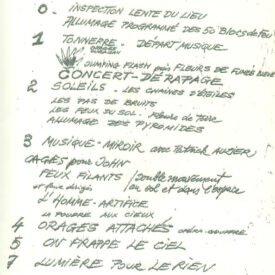 0. INSPECTION LENTE DU LIEU
ALLUMAGE PROGRAMMÉ DES 50 BLOCS de FEU
1 TONNERRE - DÉPART MUSIQUE
JUMPING FLASH puis FLEURS DE FUMÉE
CONCERT-DÉRAPAGE
2 SOLEILS - LES CHAÎNES D'ÉTOILES
LES PAS DE BRUITS
LES FEUX DU SOL - Fleurs de Terre
ALLUMAGE DES PYROMIDES
3 MUSIQUE-MIROIR avec Patrick
CAGES pour JOHN
FEUX FILANTS / double mouvement
et feux dirigés / au sol et dans l'espace
L'HOMME-ARTIFICE
LA POUDRE AUX CIEUX
4 ORAGES ATTACHÉS
5 ON FRAPPE LE CIEL
7 LUMIÈRE POUR LE RIEN